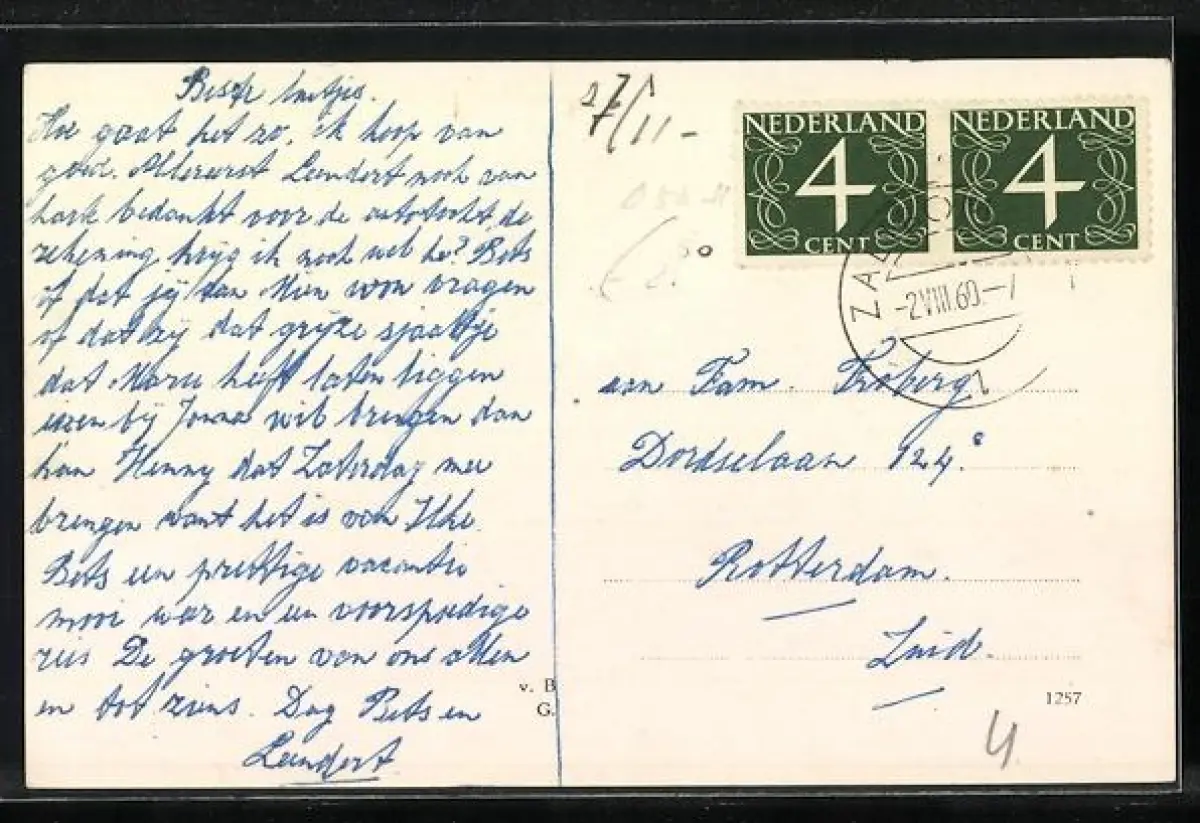 Beste luitjes.
Hoe gaat het zo, ik hoop van
goed. Allereerst Leendert noch van
hark bedankt voor de autotocht, de
rekening krijg ik noch wel he? Bets
of dat jij dan Mien won vragen
of dat zij dat grijze sjaaltje
dat Marie heeft laten liggen
even bij Jonna wil brengen dan
kan Henny dat Zaterdag mee
brengen want het is van Ilke.
Bets een prettige vacantie
mooi weer en een voorspoedige
reis De groeten van ons allen
en tot ziens. Dag Bets en
Leendert
v. B
G.
27/11-
NEDERLAND
4
CENT
NEDERLAND
4
CENT
-2VIII.60.-7
aan Fam. Fröberg
Dordselaan 124c
Rotterdam.
Zuid.
1257
4